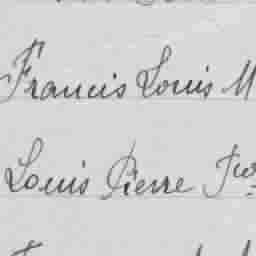 Francis Louis M
Louis Pierre